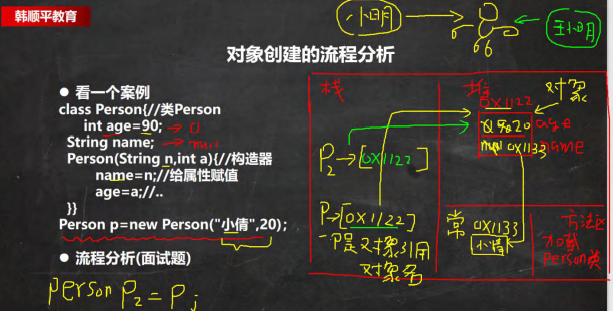 韩顺平教育
小明
王小明
对象创建的流程分析
● 看一个案例
class Person{//类Person
int age=90; → 0
String name; → null
Person(String n,int a){//构造器
name=n;//给属性赋值
age=a;//..
}}
Person p=new Person("小倩",20);
● 流程分析(面试题)
person P2 = P;
栈
堆
对象
0x1122
20 age
null 0x1133 name
P2→[0x1122]
P→[0x1122]
是对象引用
对象名
常
0x1133
小倩
方法区
加载
Person类